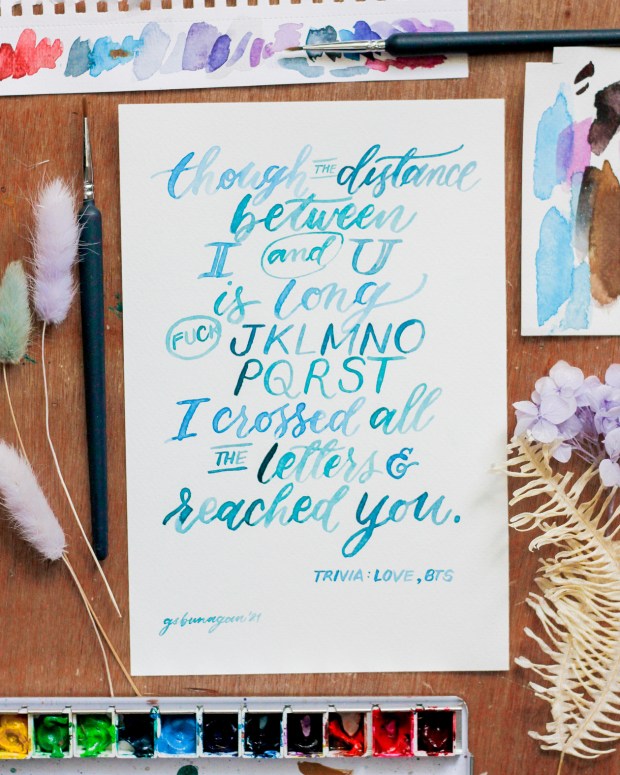 though THE distance
between
I and U
is long
FUCK JKLMNO
PQRST
I crossed all
THE letters &
reached you.
TRIVIA: LOVE, BTS